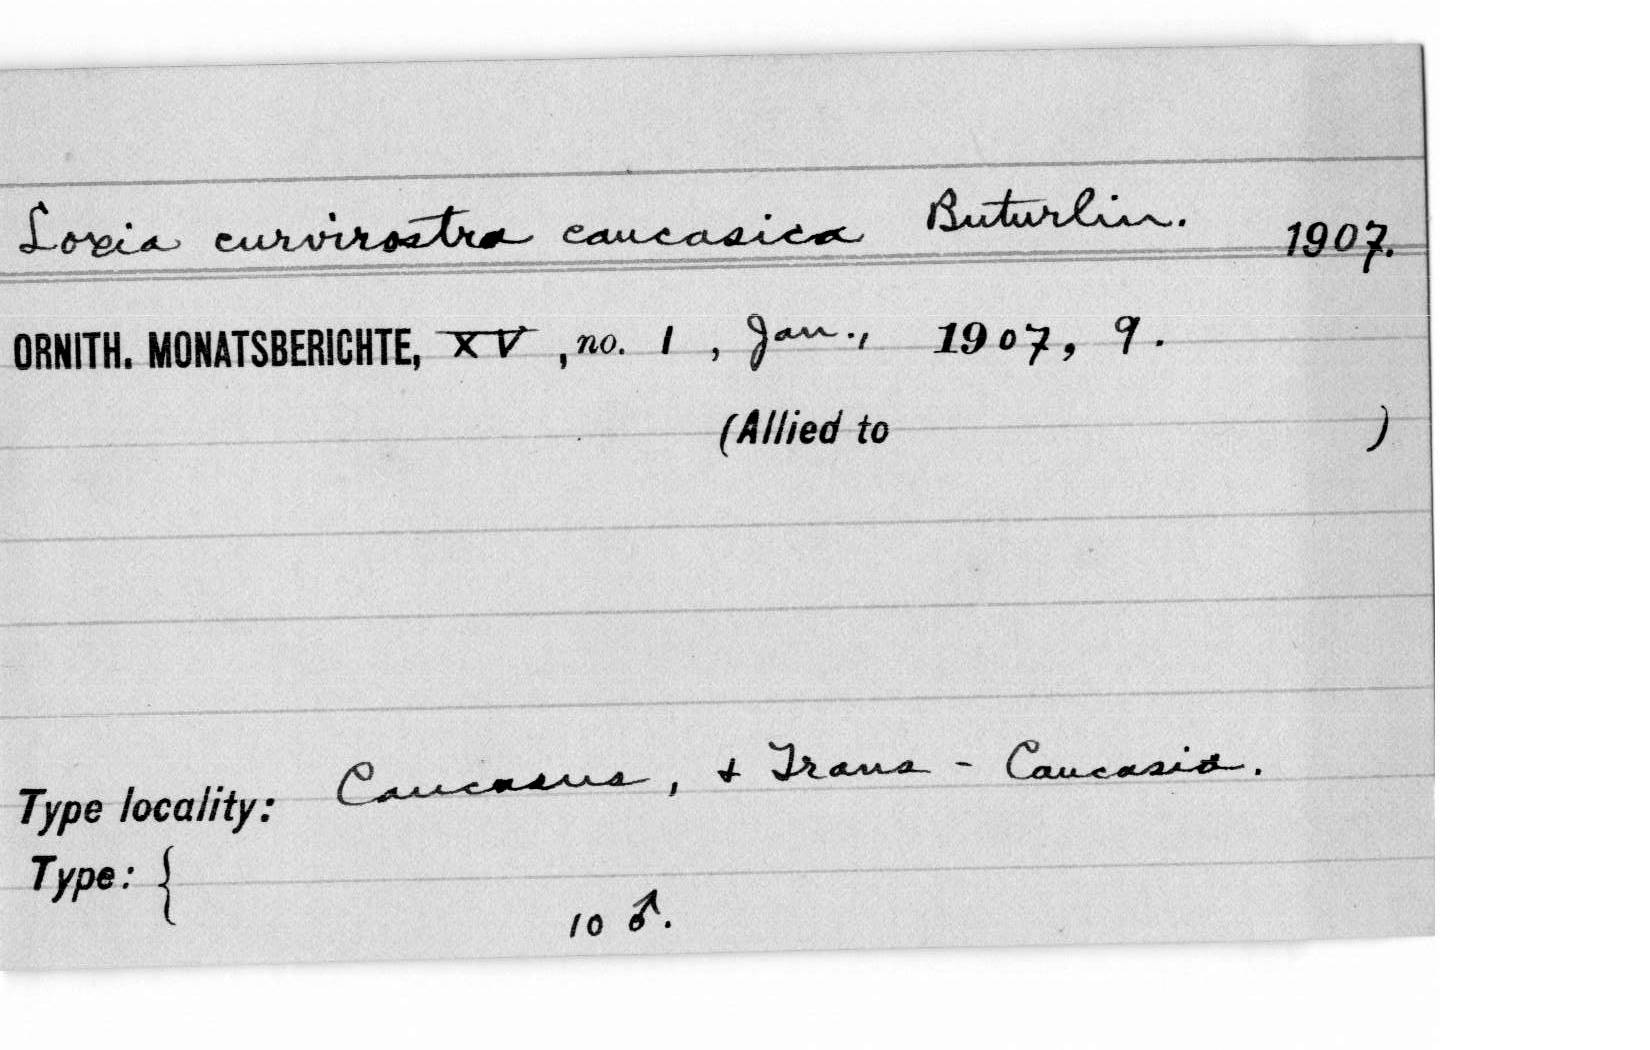 Loxia curvirostra caucasica Buturlin. 1907.
ORNITH. MONATSBERICHTE, XV, no. 1, Jan., 1907, 9.
(Allied to )
Type locality: Caucasus, & Trans-Caucasia.
Type: {
10 ♂.